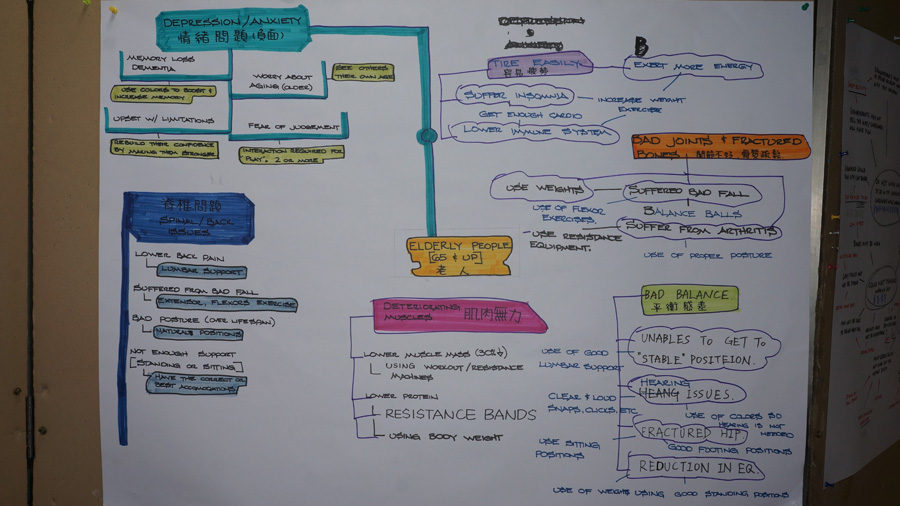 DEPRESSION/ANXIETY
情緒問題(負面)
MEMORY LOSS
DEMENTIA
USE COLORS TO BOOST &
INCREASE MEMORY
WORRY ABOUT
AGING (OLDER)
SEE OTHERS
THEIR OWN AGE
UPSET W/ LIMITATIONS
REBUILD THEIR CONFIDENCE
BY MAKING THEM STRONGER
FEAR OF JUDGEMENT
INTERACTION REQUIRED FOR
"PLAY". 2 OR MORE
脊椎問題
SPINAL/BACK
ISSUES
LOWER BACK PAIN
LUMBAR SUPPORT
SUFFERED FROM BAD FALL
EXTENSOR, FLEXORS EXERCISE
BAD POSTURE (OVER LIFESPAN)
NATURAL POSITIONS
NOT ENOUGH SUPPORT
[STANDING OR SITTING]
HAVE THE CORRECT OR
BEST ACCOMODATIONS
ELDERLY PEOPLE
[65 & UP]
老人
TIRE EASILY
B
EXERT MORE ENERGY
SUFFER INSOMNIA
INCREASE WEIGHT
EXERCISE
GET ENOUGH CARDIO
LOWER IMMUNE SYSTEM
BAD JOINTS & FRACTURED
BONES
USE WEIGHTS
SUFFERED BAD FALL
USE OF FLEXOR
EXERCISES.
BALANCE BALLS
USE RESISTANCE
EQUIPMENT.
SUFFER FROM ARTHRITIS
USE OF PROPER POSTURE
DETERIORATING
MUSCLES 肌肉無力
LOWER MUSCLE MASS (30%↓)
USING WORKOUT/RESISTANCE
MACHINES
LOWER PROTEIN
RESISTANCE BANDS
USING BODY WEIGHT
BAD BALANCE
平衡感差
UNABLES TO GET TO
"STABLE" POSITEION.
USE OF GOOD
LUMBAR SUPPORT
HEARING
HEANG ISSUES.
CLEAR & LOUD
SNAPS, CLICKS, ETC
USE OF COLORS SO
HEARING IS NOT
NEEDED
FRACTURED HIP
GOOD FOOTING POSITIONS
USE SITTING
POSITIONS
REDUCTION IN EQ.
USE OF WEIGHTS USING GOOD STANDING POSITIONS